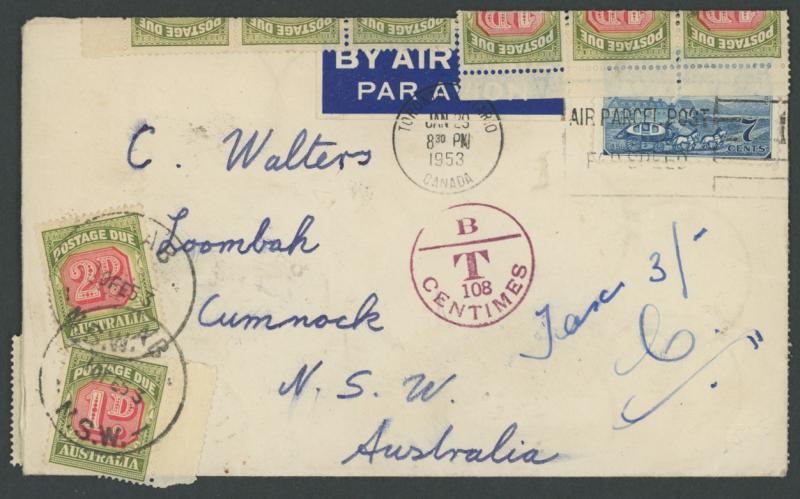 POSTAGE DUE POSTAGE DUE POSTAGE DUE
POSTAGE DUE POSTAGE DUE POSTAGE DUE
BY AIR
PAR AV
JAN 29
8³⁰ PM
1953
CANADA
AIR PARCEL POST
7
CENTS
C. Walters
Loombah
Cumnock
N. S. W.
Australia
B
T
108
CENTIMES
Tax 3/-
POSTAGE DUE
2D
AUSTRALIA
N.S.W.
POSTAGE DUE
1D
AUSTRALIA
N.S.W.